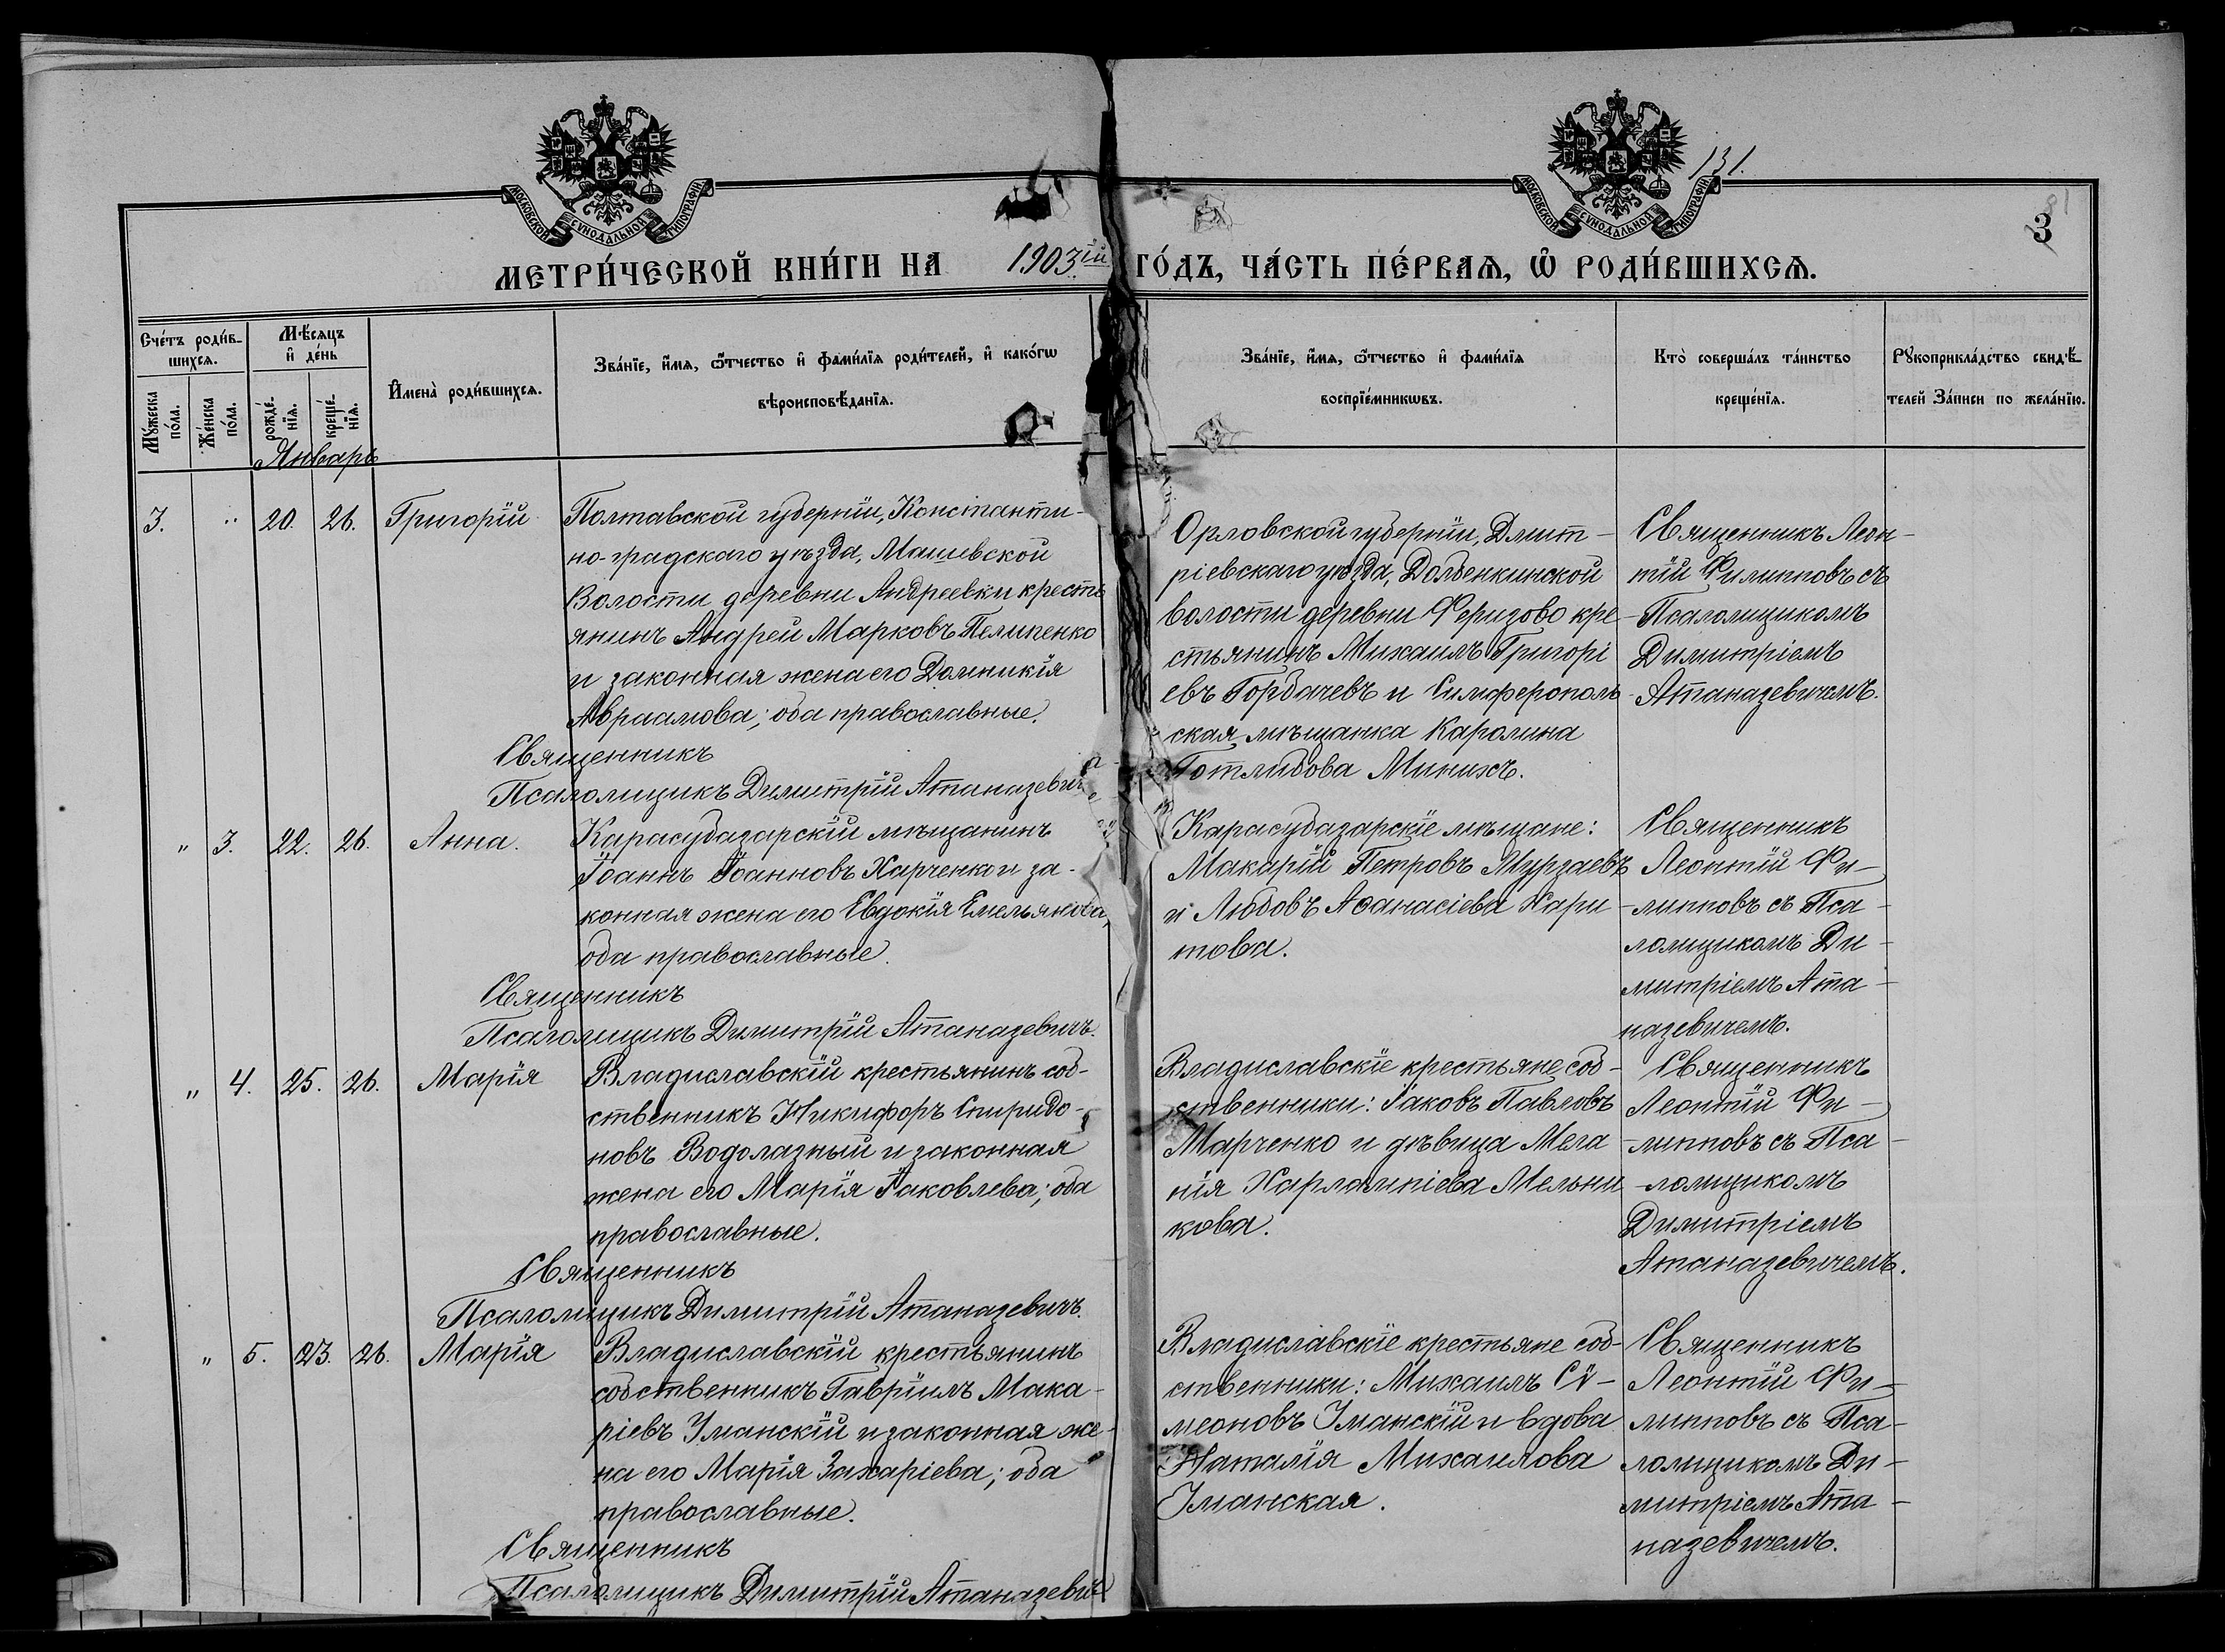 МОСКОВСКОЙ СѴНОДАЛЬНОЙ ТИПОГРАФІИ
МОСКОВСКОЙ СѴНОДАЛЬНОЙ ТИПОГРАФІИ
131.
3
МЕТРИ́ЧЕСКОЙ КНИ́ГИ НА 1903ій ГО́ДЪ, ЧА́СТЬ ПЕ́РВАѦ, Ѡ҆ РОДИ́ВШИХСѦ.
Сче́тъ роди́в-
шихсѧ.
Мꙋ́жеска по́ла.
Же́нска по́ла.
Мѣ́сяцъ и҆ де́нь
рожде́-нїѧ.
креще́-нїѧ.
И҆мена̀ роди́вшихсѧ.
Зва́нїе, и҆́мѧ, ѻ҆́тчество и҆ фами́лїѧ роди́телей, и҆ како́гѡ
вѣроисповѣ́данїѧ.
Зва́нїе, и҆́мѧ, ѻ҆́тчество и҆ фами́лїѧ
воспрїе́мникѡвъ.
Кто̀ соверша́лъ та́инство
креще́нїѧ.
Рꙋкоприкла́дство свидѣ́-
телей За́писи по жела́нїю.
Январь
3. " 20. 26. Григорій
Полтавской губерніи, Константи-
но-градскаго уѣзда, Машевской
Волости деревни Андреевки кресть
янинъ Андрей Марковъ Пелипенко
и законная жена его Домникія
Авраамова; оба православные.
Священникъ
Псаломщикъ Димитрій Атаназевич
Орловской губерніи, Дмит-
ріевскаго уѣзда, Долбенкинской
волости деревни Феризово кре-
стьянинъ Михаилъ Григорі
евъ Горбачевъ и Симферополь-
ская мѣщанка Каролина
Готлибова Минихъ.
Священникъ Леон-
тій Филипповъ съ
Псаломщикомъ
Димитріемъ
Атаназевичемъ.
" 3. 22. 26. Анна.
Карасубазарскій мѣщанинъ
Іоаннъ Іоанновъ Харченко и за-
конная жена его Евдокія Емельянова,
оба православные.
Священникъ
Псаломщикъ Димитрій Атаназевичъ.
Карасубазарскіе мѣщане:
Макарій Петровъ Мурзаевъ
и Любовь Аѳанасіева Хари-
това.
Священникъ
Леонтій Фи-
липповъ съ Пса-
ломщикомъ Ди-
митріемъ Ата-
назевичемъ.
" 4. 25. 26. Марія
Владиславскій крестьянинъ соб-
ственникъ Никифоръ Спиридо-
новъ Водолазный и законная
жена его Марія Іаковлева; оба
православные.
Священникъ
Псаломщикъ Димитрій Атаназевичъ.
Владиславскіе крестьяне соб-
ственники: Іаковъ Павловъ
Марченко и дѣвица Мела
нія Харлампіева Мельни
кова.
Священникъ
Леонтій Фи-
липповъ съ Пса-
ломщикомъ
Димитріемъ
Атаназевичемъ.
" 5. 23. 26. Марія
Владиславскій крестьянинъ
собственникъ Гавріилъ Мака-
ріевъ Уманскій и законная же-
на его Марія Захаріева; оба
православные.
Священникъ
Псаломщикъ Димитрій Атаназевич
Владиславскіе крестьяне соб-
ственники: Михаилъ Сѵ-
меоновъ Уманскій и вдова
Наталія Михаилова
Уманская.
Священникъ
Леонтій Фи-
липповъ съ Пса-
ломщикомъ Ди-
митріемъ Ата-
назевичемъ.